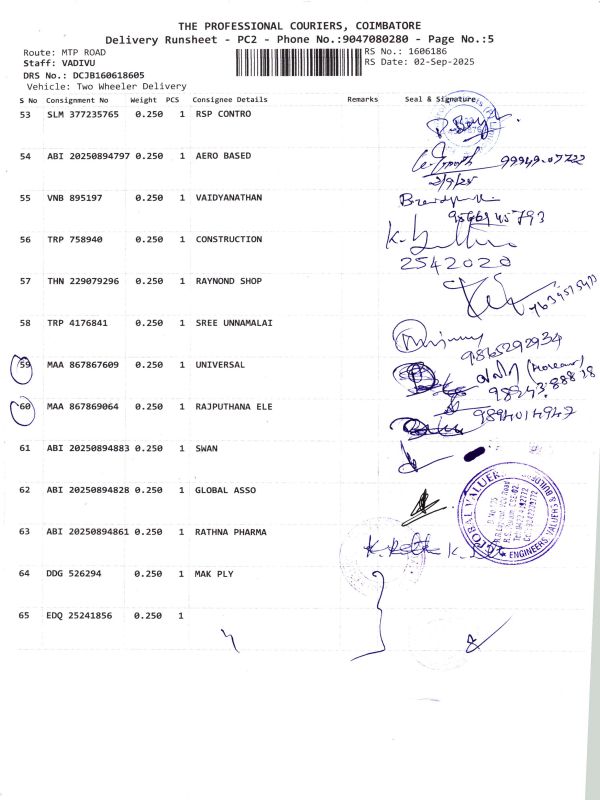 THE PROFESSIONAL COURIERS, COIMBATORE
Delivery Runsheet - PC2 - Phone No.:9047080280 - Page No.:5
Route: MTP ROAD RS No.: 1606186
Staff: VADIVU RS Date: 02-Sep-2025
DRS No.: DCJB160618605
Vehicle: Two Wheeler Delivery
S No Consignment No Weight PCS Consignee Details Remarks Seal & Signature
53 SLM 377235765 0.250 1 RSP CONTRO
54 ABI 20250894797 0.250 1 AERO BASED 99949-07722
2/9/25
55 VNB 895197 0.250 1 VAIDYANATHAN
56 TRP 758940 0.250 1 CONSTRUCTION
2542020
57 THN 229079296 0.250 1 RAYNOND SHOP
58 TRP 4176841 0.250 1 SREE UNNAMALAI
9865292934
59 MAA 867867609 0.250 1 UNIVERSAL
98243.88818
60 MAA 867869064 0.250 1 RAJPUTHANA ELE
9894014947
61 ABI 20250894883 0.250 1 SWAN
62 ABI 20250894828 0.250 1 GLOBAL ASSO
GLOBAL VALUER
ENGINEERS VALUER & BUILDERS
63 ABI 20250894861 0.250 1 RATHNA PHARMA
64 DDG 526294 0.250 1 MAK PLY
65 EDQ 25241856 0.250 1